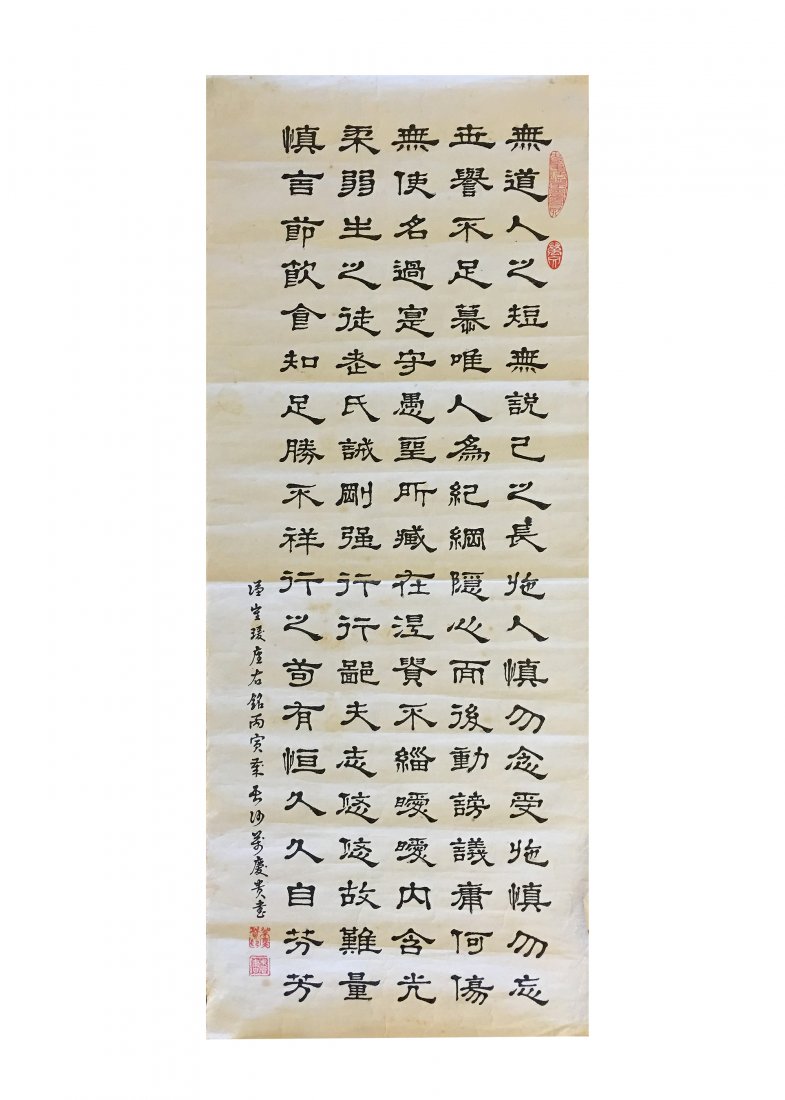 無道人之短無説己之長施人慎勿念受施慎勿忘
世譽不足慕唯人為紀綱隱心而後動謗議庸何傷
無使名過寔守愚聖所臧在涅貴不緇曖曖内含光
柔弱生之徒老氏誡剛强行行鄙夫志悠悠故難量
慎言節飲食知足勝不祥行之苟有恒久久自芬芳
漢崔瑗座右銘丙寅歲長沙萬慶貴書